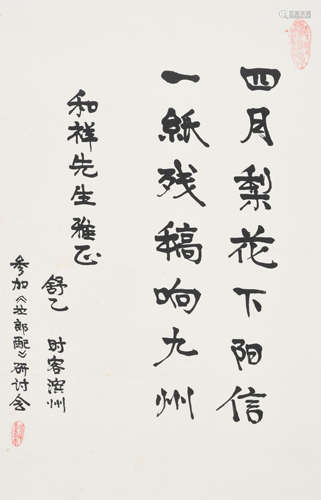 四月梨花下阳信
一纸残稿响九州
和祥先生雅正
舒乙 时客滨州
参加《壮郎配》研讨会